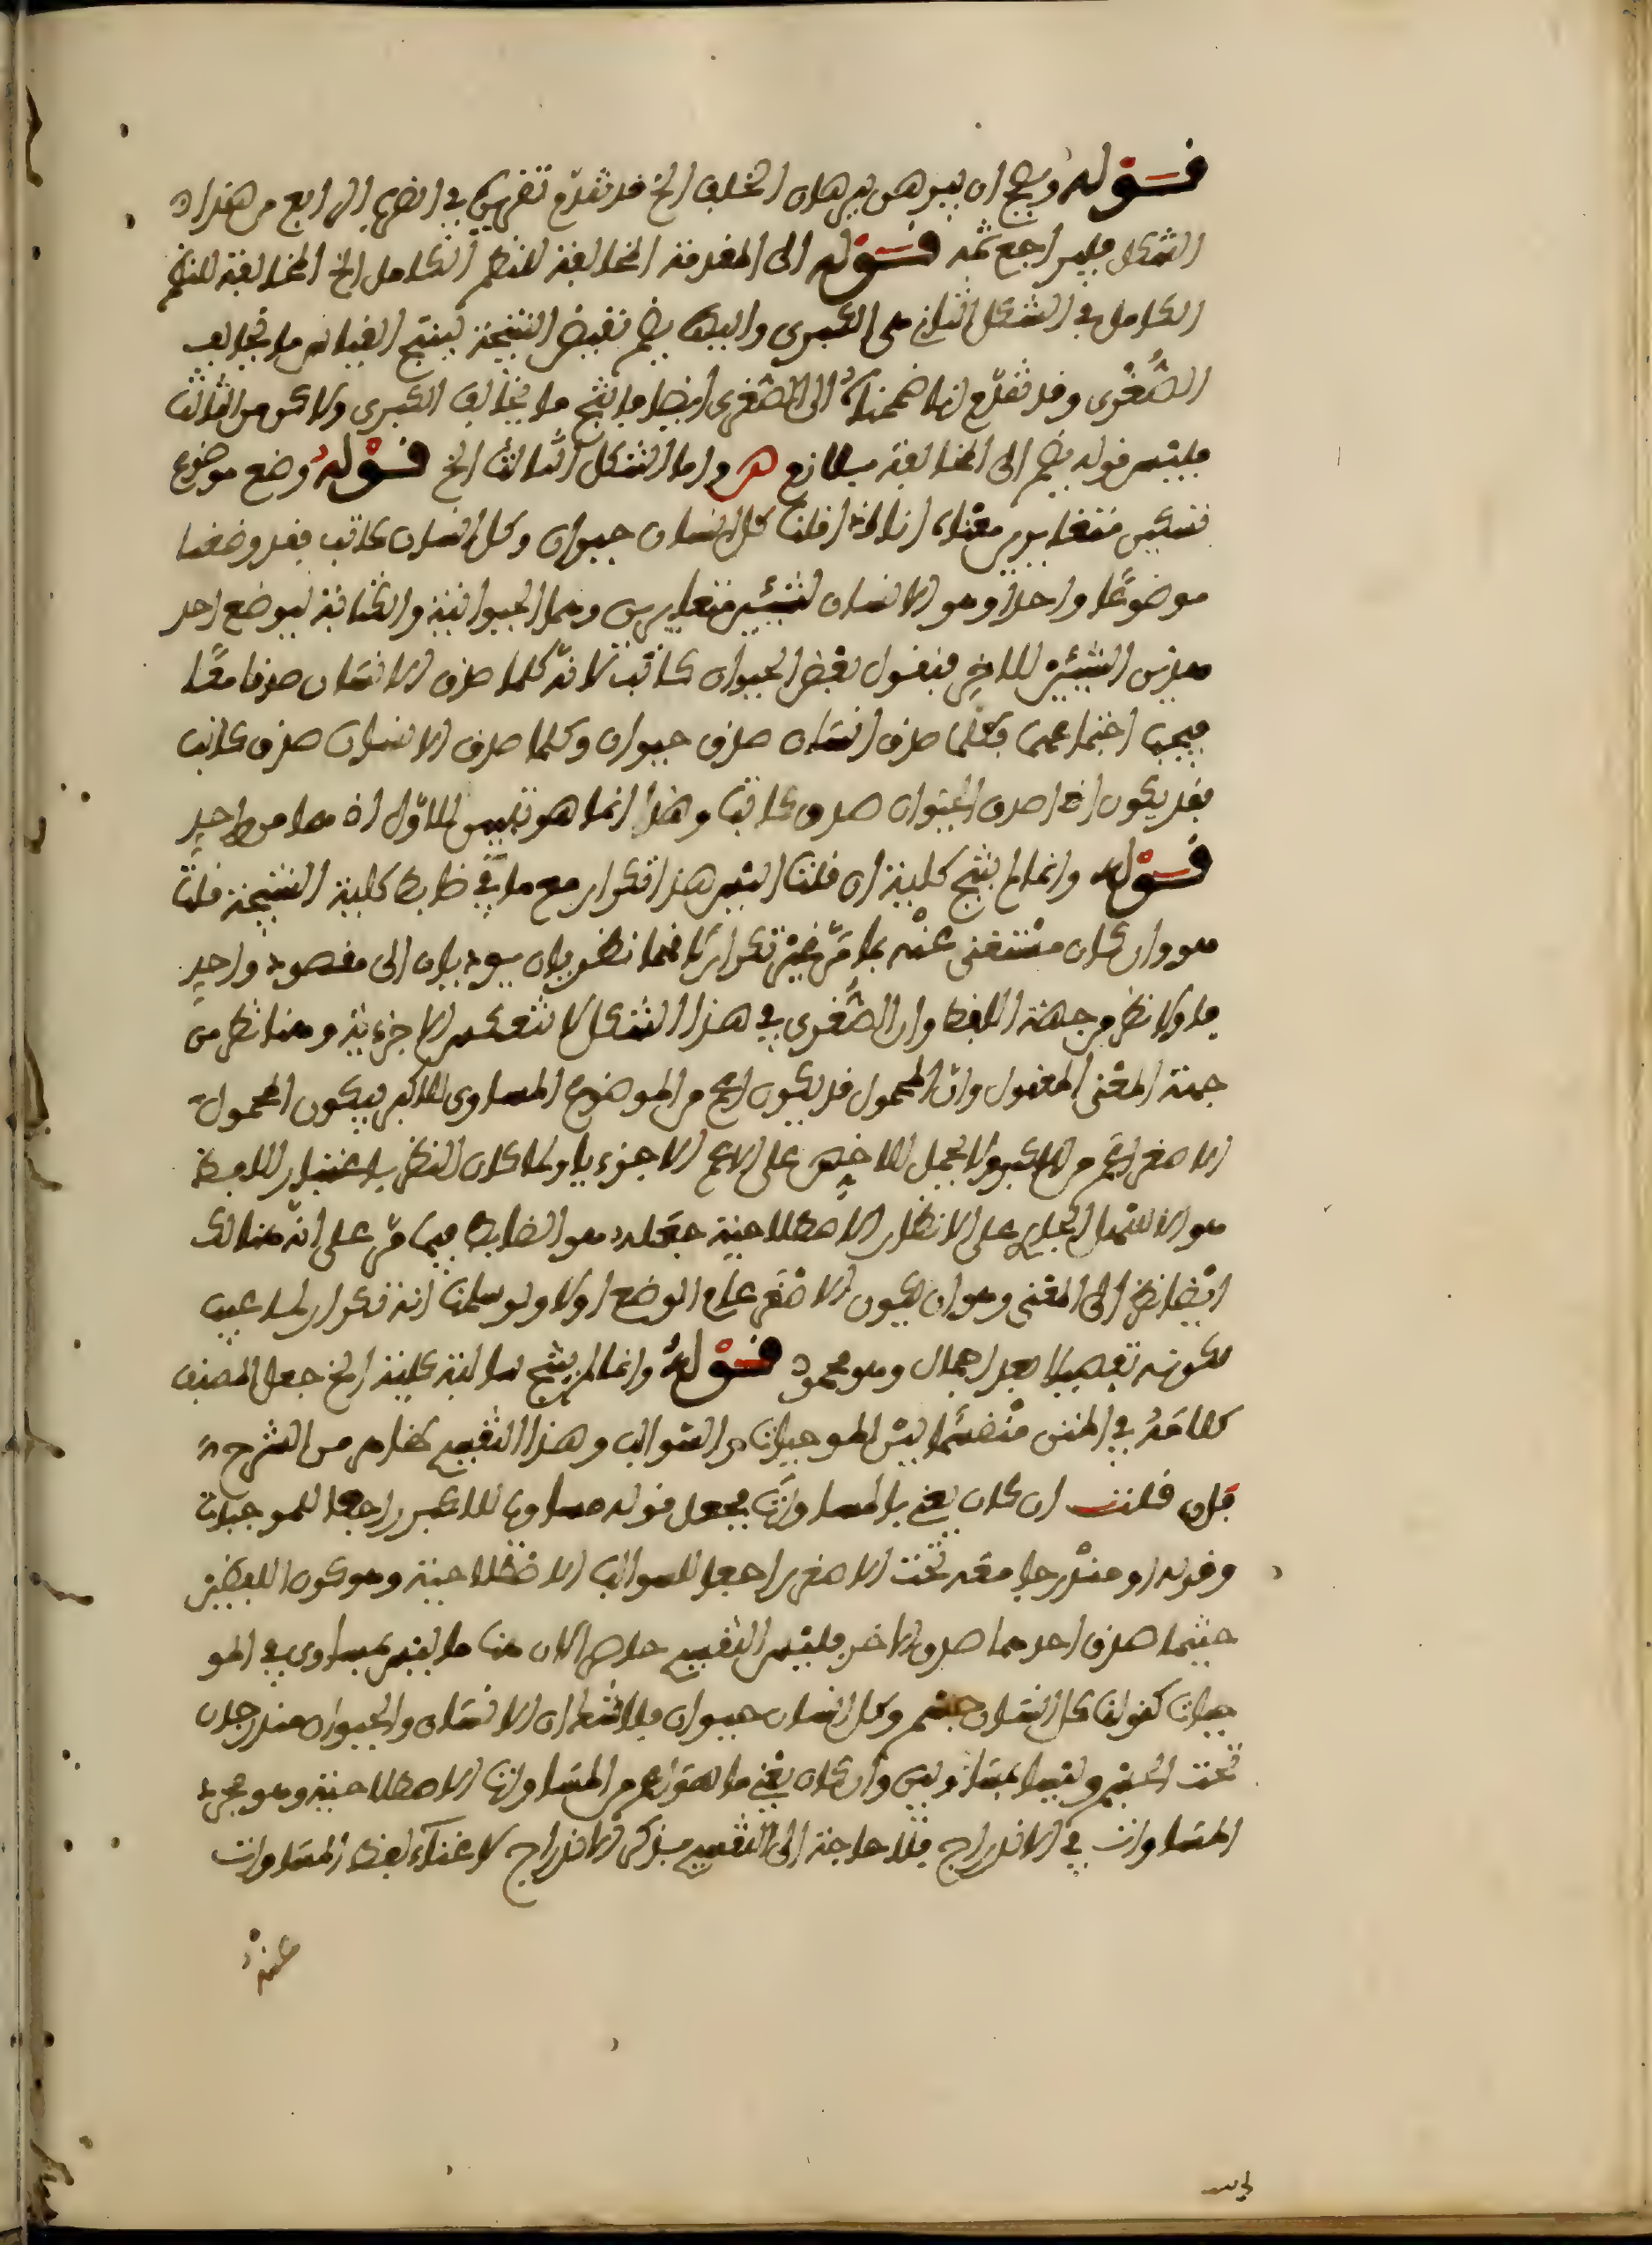 قوله ويصح ان يبرهن ببرهان الخلف الخ قد تقدم تقريره في الضرب الرابع من هذا
الشكل فليراجع ثمه قوله الى المقدمة المخالفة للنظم الكامل الخ المخالفة للنظم
الكامل في الشكل الثاني هي الكبرى واليها يضم نقيض النتيجة لينتج القياس ما يخالف
الصغرى وقد تقدم انها ضممناه الى الصغرى ايضا ما ينتج ما يخالف الكبرى ولاكن من الثالث
فليس قوله يضم الى المخالفة بلازم هـ واما الشكل الثالث الخ قوله وضع موضوع
لشيئين متغايرين معناه انا اذا قلنا كل انسان حيوان وكل انسان كاتب فقد وضعنا
موضوعا واحدا وهو الانسان لشيئين متغايرين وهما الحيوانية والكتابة ليوضع احد
هذين الشيئين للاخر فنقول بعض الحيوان كاتب لانه كلما صدق الانسان صدقا معا
فيجب اجتماعهما فكلما صدق انسان صدق حيوان وكلما صدق الانسان صدق كاتب
فقد يكون اذا صدق الحيوان صدق كاتب وهذا انما هو تبيين للاول اذ هما من واحد
قوله وانما لم ينتج كلية ان قلت اليس هذا تكرار مع ما في ضابط كلية النتيجة قلت
هو وان كان مستغنى عنه بما مر غير تكرار انما نظر بان يوديان الى مقصود واحد
فاولا نظر من جهة اللفظ وان الصغرى في هذا الشكل لا تنعكس الا جزءية وهنا نظر من
جهة المعنى المعقول وان المحمول قد يكون اعم من الموضوع المساوي للاكبر فيكون المحمول
الاصغر اعم من الاكبر ولا يحمل الاخص على الاعم الا جزءيا ولما كان النظر باعتبار اللفظ
هو الاسهل الجاري على الانظار الاصطلاحية جعله هو الضابط فيما مر على انه هنالك
ايضا نظر الى المعنى وهو ان يكون الاصغر عام الوضع اولا ولو سلمنا انه تكرار لما عيب
لكونه تفصيلا بعد اجمال وهو محمود قوله وانما لم ينتج سالبة كلية الخ جعل المصنف
كلامه في المتن منقسما بين الموجبات والسوالب وهذا التقييد ظاهر من الشرح
فان قلت ان كان يعني بالمساواة فيجعل قوله مساويا للاكبر راجعا للموجبات
وقوله او مندرجا معه تحت الاصغر راجعا للسوالب الاصطلاحية وهو كون اللفظين
حيثما صدق احدهما صدق الاخر فليس التقييد حاصرا لان منها ما ليس بمساوي في المو
جبات كقولنا كل انسان جسم وكل انسان حيوان فلا شك ان الانسان والحيوان مندرجان
تحت الجسم وليسا بمتساويين وان كان يعني ما هو اعم من المساواة الاصطلاحية وهو مجرد
المساوات في الاندراج فلا حاجة الى التقييد بذكر الاندراج لاغناء لفظ المساوات
عنه